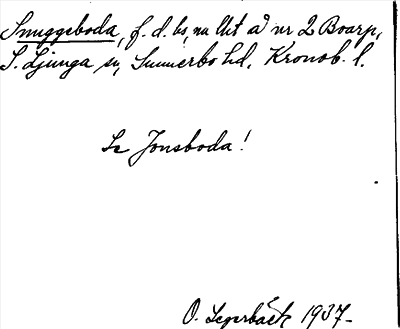 Snuggeboda, f. d. bs, nu lht å nr 2 Boarp,
S. Ljunga sn, Sunnerbo hd, Kronob. l.
Se Jonsboda!
O. Segerbäck 1937